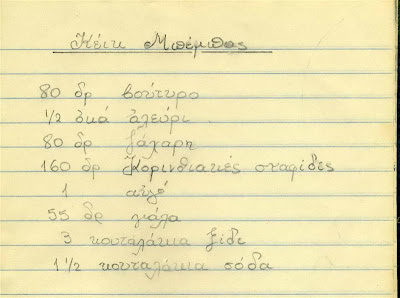 Κέικ Μπέμπας
80 δρ βούτυρο
1/2 ὀκά ἀλεύρι
80 δρ ζάχαρη
160 δρ Κορινθιακιές σταφίδες
1 αὐγό
55 δρ γιάλα
3 κουταλάκια ξίδι
1 1/2 κουταλάκια σόδα